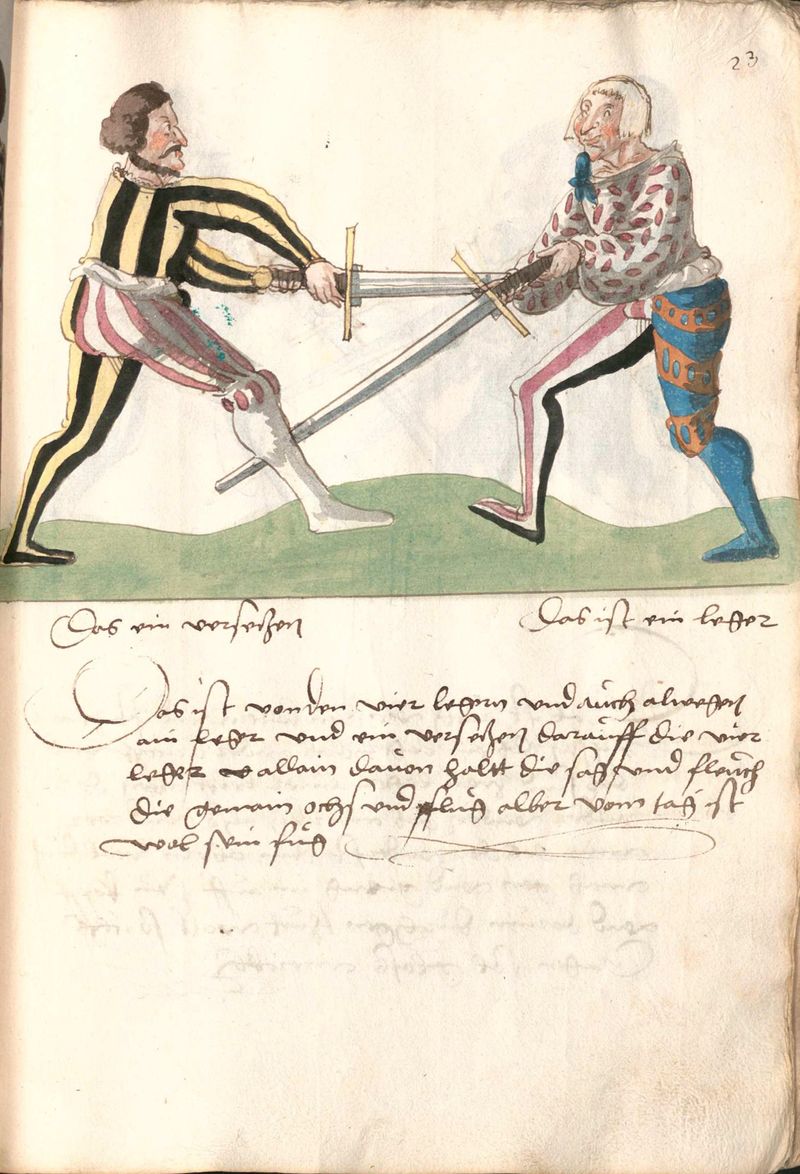 23
Das ein versetzen
Das ist ein leger
Das ist von den vier legern und auch alwegen
ain leger und ein versetzen darauff die vier
leger allain davon haltt die sag und fleuch
die gemain ochs und pflug alber vom tag ist
wol sein fug